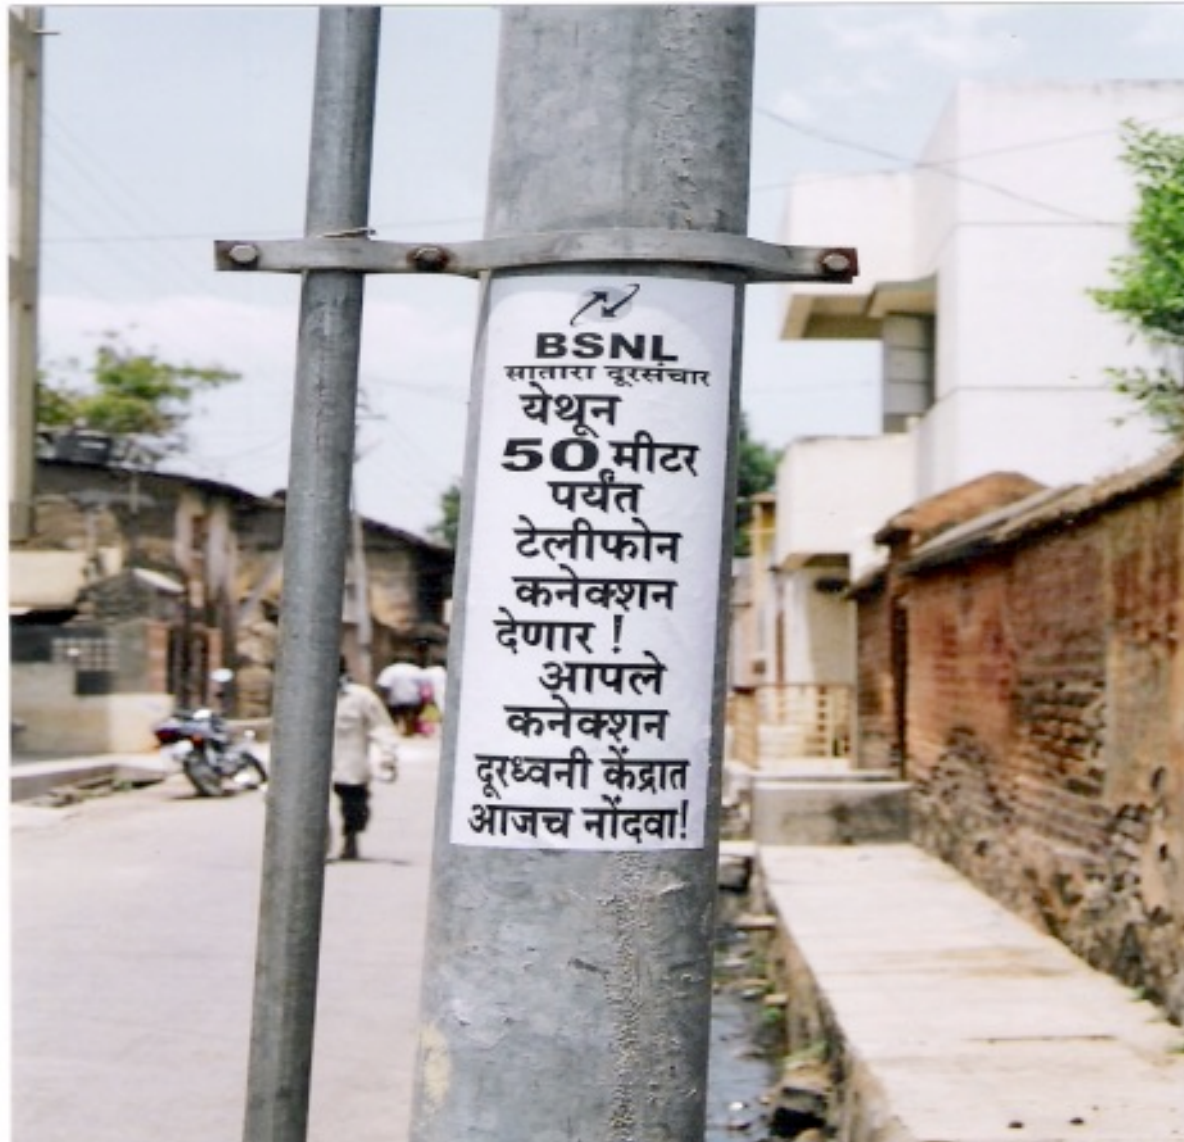 BSNL
सातारा दूरसंचार
येथून
50 मीटर
पर्यंत
टेलीफोन
कनेक्शन
देणार !
आपले
कनेक्शन
दूरध्वनी केंद्रात
आजच नोंदवा!